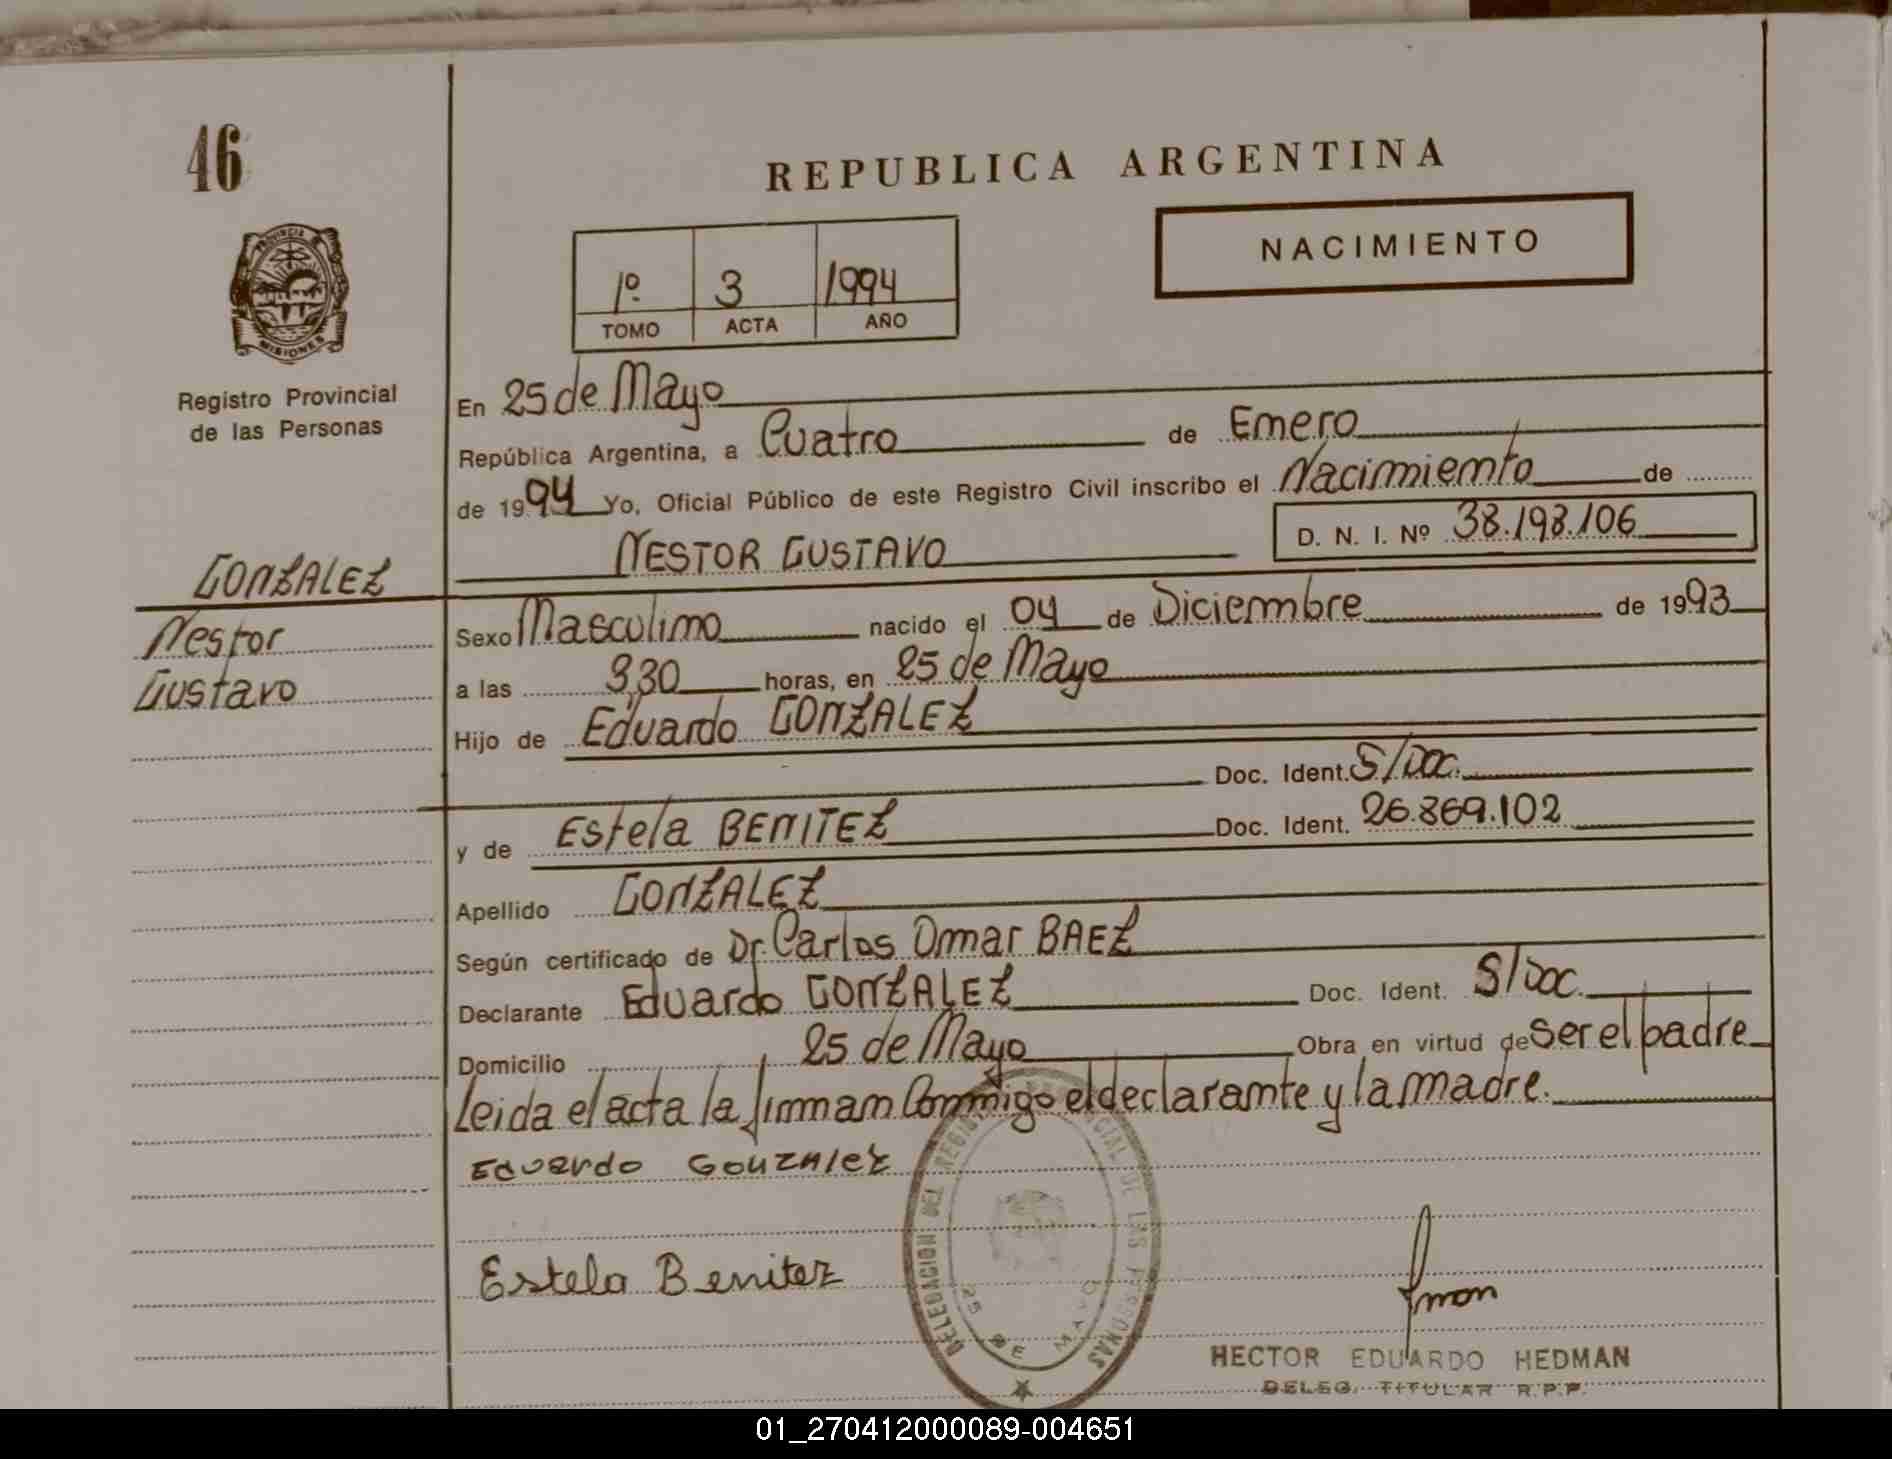 46
REPUBLICA ARGENTINA
NACIMIENTO
1º 3 1994
TOMO ACTA AÑO
PROVINCIA DE
MISIONES
Registro Provincial
de las Personas
En 25 de Mayo
República Argentina, a Cuatro de Enero
de 1994 Yo, Oficial Público de este Registro Civil inscribo el Nacimiento de
NESTOR GUSTAVO D. N. I. Nº 38.198.106
GONZALEZ
Nestor
Gustavo
Sexo Masculino nacido el 04 de Diciembre de 1993
a las 3,30 horas, en 25 de Mayo
Hijo de Eduardo GONZALEZ
Doc. Ident. S/Doc.
y de Estela BENITEZ Doc. Ident. 26.869.102
Apellido GONZALEZ
Según certificado de Dr. Carlos Omar BAEZ
Declarante Eduardo GONZALEZ Doc. Ident. S/Doc.
Domicilio 25 de Mayo Obra en virtud de ser el padre
Leida el acta la firman Conmigo el declarante y la madre.
Eduardo Gonzalez
Estela Benitez
DELEGACION DEL REGISTRO PROVINCIAL DE LAS PERSONAS
25 DE MAYO
HECTOR EDUARDO HEDMAN
DELEG. TITULAR R.P.P.
01_270412000089-004651